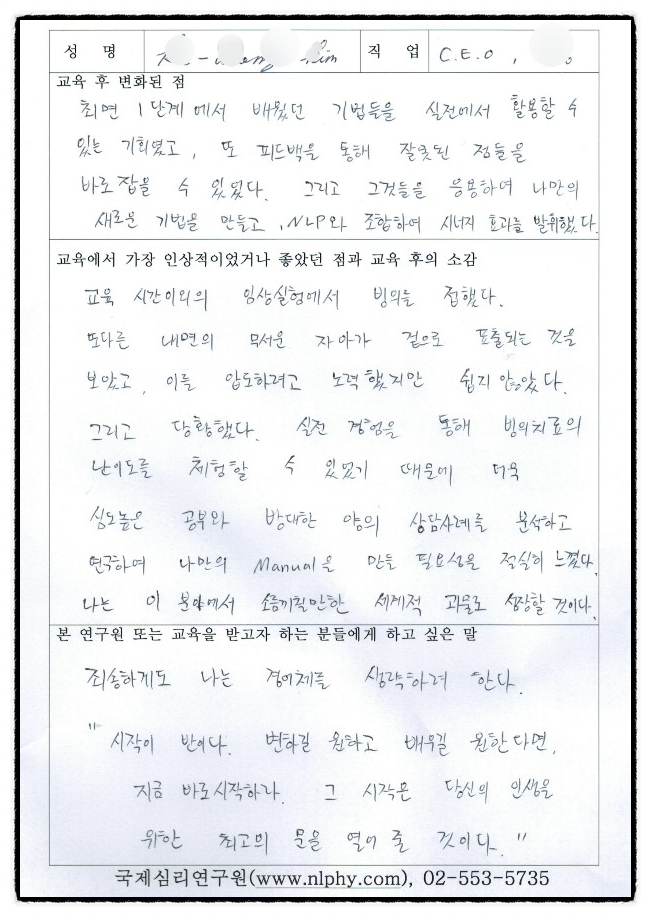 성 명 직 업 C.E.O ,
교육 후 변화된 점
최면 1단계에서 배웠던 기법들을 실전에서 활용할 수
있는 기회였고, 또 피드백을 통해 잘못된 점들을
바로잡을 수 있었다. 그리고 그것들을 응용하여 나만의
새로운 기법을 만들고, NLP와 조합하여 시너지 효과를 발휘했다.
교육에서 가장 인상적이었거나 좋았던 점과 교육 후의 소감
교육 시간이외의 임상실험에서 빙의를 접했다.
또다른 내면의 무서운 자아가 겉으로 표출되는 것을
보았고, 이를 압도하려고 노력했지만 쉽지 않았다.
그리고 당황했다. 실전 경험을 통해 빙의치료의
난이도를 체험할 수 있었기 때문에 더욱
심도높은 공부와 방대한 양의 상담사례를 분석하고
연구하여 나만의 Manual을 만들 필요성을 절실히 느꼈다.
나는 이 분야에서 소름끼칠만한 세계적 괴물로 성장할 것이다.
본 연구원 또는 교육을 받고자 하는 분들에게 하고 싶은 말
죄송하게도 나는 경어체를 생략하려 한다.
"시작이 반이다. 변하길 원하고 배우길 원한다면,
지금 바로시작하라. 그 시작은 당신의 인생을
위한 최고의 문을 열어 줄 것이다."
국제심리연구원(www.nlphy.com), 02-553-5735